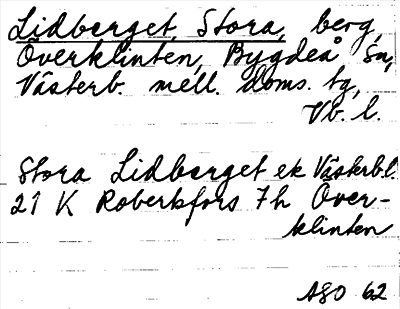 Lidberget, Stora, berg,
Överklinten, Bygdeå sn,
Västerb. mell. doms. tg,
Vb. l.
Stora Lidberget ek Västerbl.
21 K Robertsfors 7h Över-
klinten
ASO 62